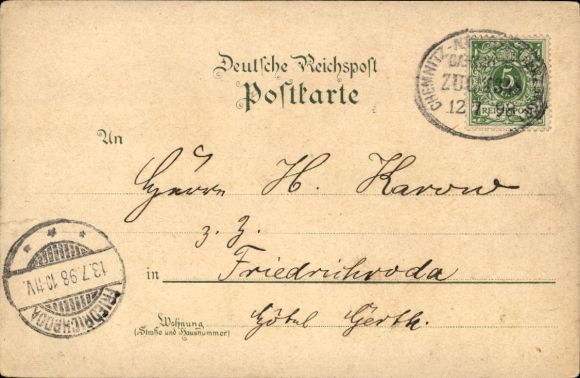 Deutsche Reichspost
Postkarte
CHEMNITZ-
ZUG
12 7 98
5
REICHSPOST
An
Herrn H. Karow
z. Z.
in Friedrichroda
Wohnung
(Straße und Hausnummer)
Hôtel Gerth.
FRIEDRICHRODA
13.7.98.10-11V.